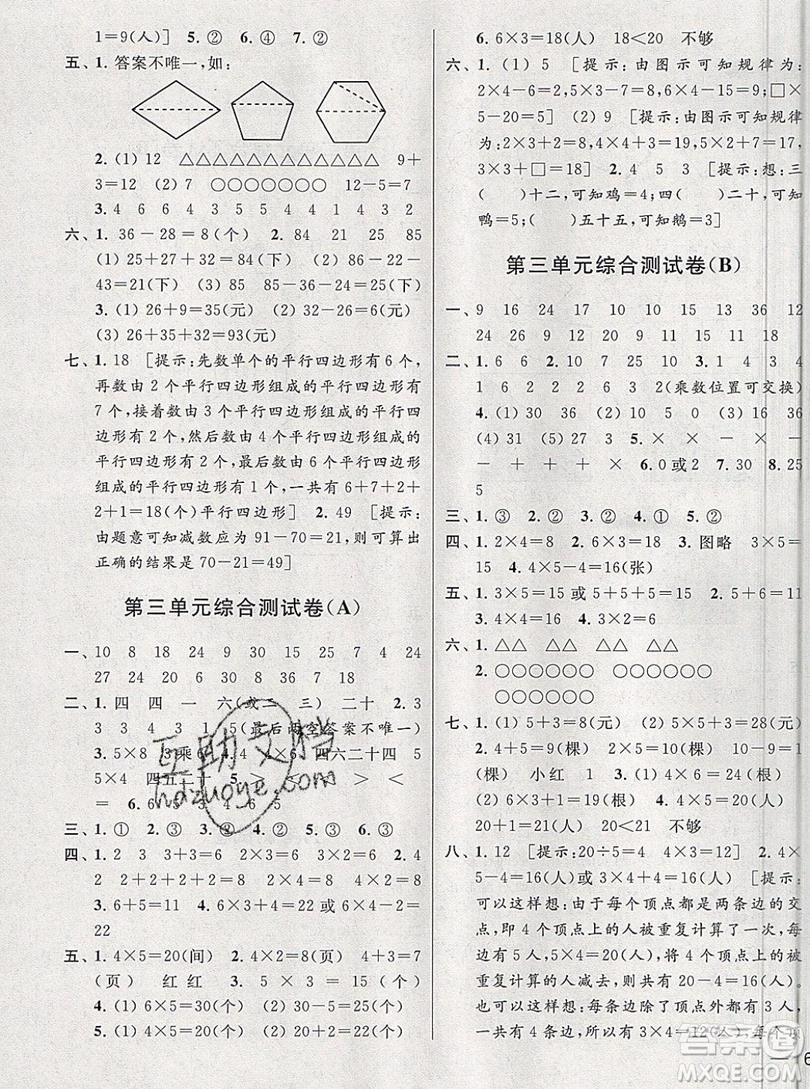 1=9(人)] 5. ② 6. ④ 7. ②
五、1. 答案不唯一,如:
2. (1) 12 △△△△△△△△△△△△ 9+
3=12 (2) 7 ○○○○○○○ 2+5=7
3. 4 6 4 3 5 5 4 4 1 4 3 2
六、1. 36-28=8(个) 2. 84 21 25 85
(1) 25+27+32=84(下)
(2) 21+32+32=85(下)
3. (1) 26+9=35(元) (2) 26+32=58(元)
(3) 26+35+32=93(元)
七、1. 18 [提示:先数单个的平行四边形有6个,
再数由2个平行四边形组成的平行四边形有
7个,接着数由3个平行四边形组成的平行四
边形有2个,然后数由4个平行四边形组成的
平行四边形有2个,最后数由6个平行四边形
组成的平行四边形有1个,一共有6+7+2+
2+1=18(个)平行四边形] 2. 49 [提示:
由题意可知减数应为91-70=21,则可算出
正确的结果是70-21=49]
第三单元综合测试卷(A)
一、10 8 18 24 9 30 15 25 7 4 24
27 24 20 6 30 8 36 7 18
二、1. 四 四 一 六(或二 三) 二十 2. 3
3 3 4 3 1 5(最后两空答案不唯一)
3. 5×8 5乘6 4. 四六二十四 5
5×5=25 四五二十 5. = > > <
= = 6. 6 3 4 6 5
三、1. ① 2. ③ 3. ② 4. ③ 5. ②
四、1. 2 3 3+3=6 2×3=6 3×2=6 2. 4
2 2+2+2+2=8 2×4=8 4×2=8
3. 6+5=11 4. 4×5+2=22或4×6-2=
22
五、1. 4×5=20(间) 2. 4×2=8(页) 4+3=7
(页) 红红 3. 5×3=15(个)
4. (1) 6×5=30(个) (2) 30-5=25(个)
5. (1) 4×5=20(个) (2) 20-4=16(个)
6. 6×3=18(人) 18<20 不够
六、1. (1) 5 [提示:由图示可知规律为:
2×4-6=2,5×5-8=17,6×4-15=9;□×
5-20=5] (2) 9 [提示:由图示可知规律
为:2×3+2=8,4×4+3=19,5×2+7=17,
3×3+□=18] 2. 4 5 3 [提示:想:三
( )十二,可知鸡=4;四( )二十,可知
鸭=5;五三十五,可知鹅=3]
第三单元综合测试卷(B)
一、9 16 24 17 10 10 15 13 36 12
24 26 9 12 8 20 30 9 11 15
二、1. 6 6 2. 10 7 25 10 3. 1 4 4
1 6 2 2 1 6 3 2(乘数位置可交换)
4. (1) 30 36 (2) 10 10 (3) 16 36
(4) 31 27 5. × × - × -
- + + + × 6. 0或2 7. 30 8. 25
5
三、1. ③ 2. ② 3. ② 4. ① 5. ②
四、1. 2×4=8 2. 6×3=18 3. 图略 3×5=
15 4. 4×5-4=16(张)
五、1. 3×5=15 2. 3×6=18 3. 5×2+6=16
4. 4×4=16 5. 2×6=12
六、1. △△ △△ △△ △△
2. ○○○○○○ ○○○○○○
○○○○○○
七、1. (1) 5+3=8(元) (2) 5×5+3=28(元)
2. 4+5=9(棵) 2×5=10(棵) 10-9=1
(棵) 小红 3. (1) 3×4=12(根)
(2) 6×3=18(根) 4. 4×5=20(人)
20+1=21(人) 20<21 不够
八、1. 12 [提示:20÷5=4 4×3=12] 2. 4×
5-4=16(人)或3×4+4=16(人) [提示:
可以这样想:由于每个顶点都是两条边的交
点,即4个顶点上的人被重复计算了一次,可
以先算每边5人,4×5=20(人),将4个顶点
被重复计算的人减去,则共有20-4=16(人).
也可以这样想:每条边除了顶点外都有3人,
一共有4条边,所以有3×4=12(人),每个顶
互助文档
hdzuoye.com
答案
MXQE.COM